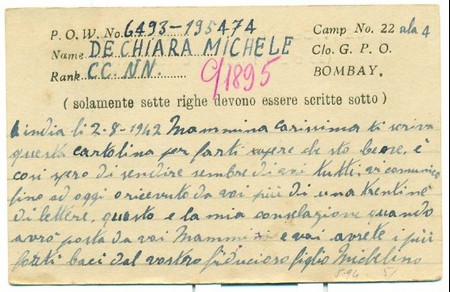 P. O. W. No. 6493-195474 Camp No. 22 ala 4
Name DE CHIARA MICHELE C/o. G. P. O.
Rank CC. NN. BOMBAY.
C/1895
(solamente sette righe devono essere scritte sotto)
India li 2-8-1942 Mammina carissima ti scrivo
questa cartolina per farti sapere che sto bene, e
cosi spero di sendire sembre di voi tutti, vi comunico
fino ad oggi o ricevuto da voi più di una trentina
di lettere, questo e la mia conselazione quando
avrò posta da voi Mammina e voi avrete i più
forti baci dal vostro fiducioso figlio Michelino